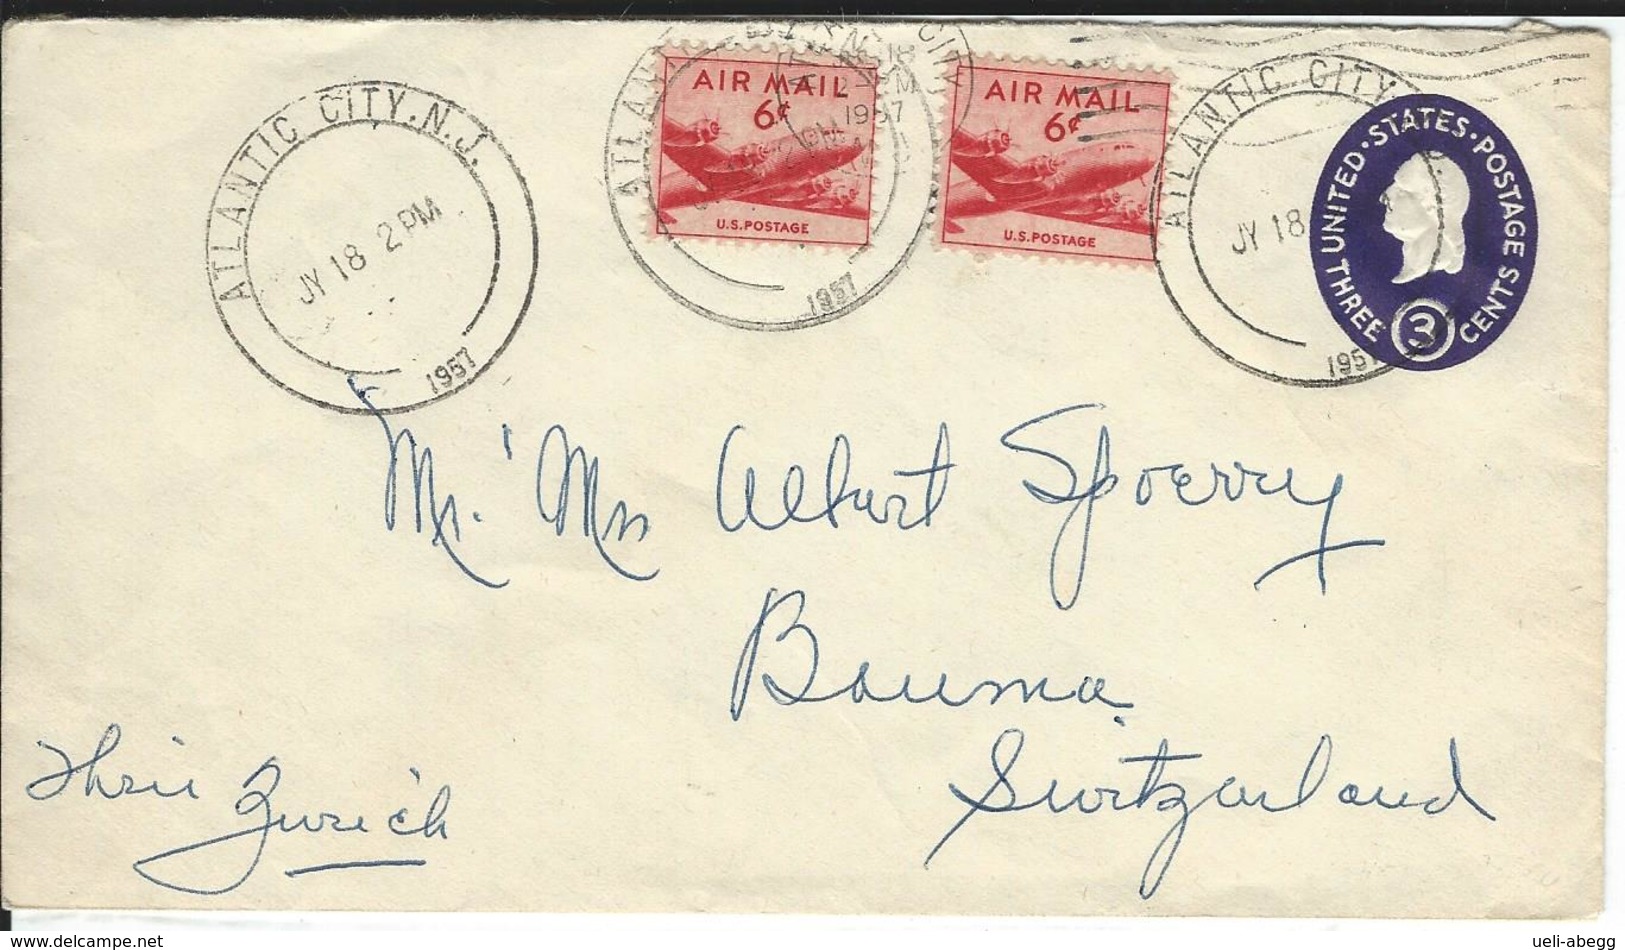 ATLANTIC CITY, N.J.
JY 18 2 PM
1957
AIR MAIL
6¢
U.S. POSTAGE
1957
AIR MAIL
6¢
U.S. POSTAGE
ATLANTIC CITY
JY 18
1957
UNITED · STATES · POSTAGE
THREE 3 CENTS
Mr. ' Mrs Albert Spoerry
Bauma
Switzerland
Zurich
www.delcampe.net
ueli-abegg